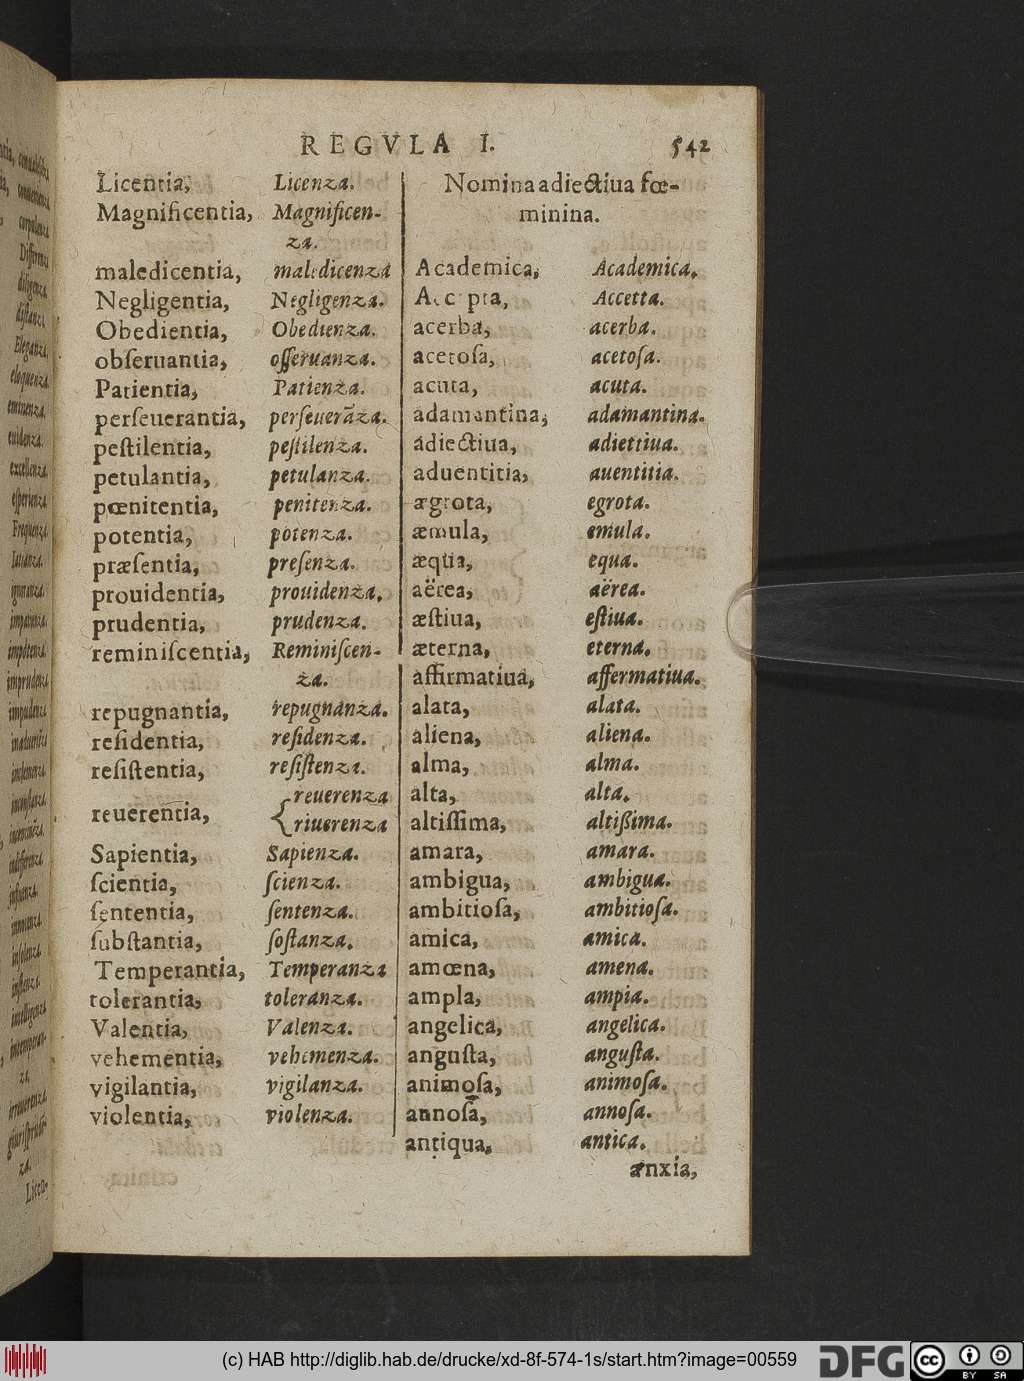 REGVLA I. 542
Licentia, Licenza.
Magnificentia, Magnificen-
za.
maledicentia, maledicenza
Negligentia, Negligenza.
Obedientia, Obedienza.
obſeruantia, oſſeruanza.
Patientia, Patienza.
perſeuerantia, perſeuerãza.
peſtilentia, peſtilenza.
petulantia, petulanza.
pœnitentia, penitenza.
potentia, potenza.
præſentia, preſenza.
prouidentia, prouidenza.
prudentia, prudenza.
reminiſcentia, Reminiſcen-
za.
repugnantia, repugnanza.
reſidentia, reſidenza.
reſiſtentia, reſiſtenza.
reuerentia, {reuerenza
riuerenza
Sapientia, Sapienza.
ſcientia, ſcienza.
ſententia, ſentenza.
ſubſtantia, ſoſtanza.
Temperantia, Temperanza
tolerantia, toleranza.
Valentia, Valenza.
vehementia, vehemenza.
vigilantia, vigilanza.
violentia, violenza.
Nomina adiectiua fœ-
minina.
Academica, Academica.
Accepta, Accetta.
acerba, acerba.
acetoſa, acetoſa.
acuta, acuta.
adamantina, adamantina.
adiectiua, adiettiua.
aduentitia, auentitia.
ægrota, egrota.
æmula, emula.
æqua, equa.
aërea, aërea.
æſtiua, eſtiua.
æterna, eterna.
affirmatiua, affermatiua.
alata, alata.
aliena, aliena.
alma, alma.
alta, alta.
altiſſima, altißima.
amara, amara.
ambigua, ambigua.
ambitioſa, ambitioſa.
amica, amica.
amœna, amena.
ampla, ampia.
angelica, angelica.
anguſta, anguſta.
animoſa, animoſa.
annoſa, annoſa.
antiqua, antica.
anxia,
(c) HAB http://diglib.hab.de/drucke/xd-8f-574-1s/start.htm?image=00559
DFG
cc BY SA